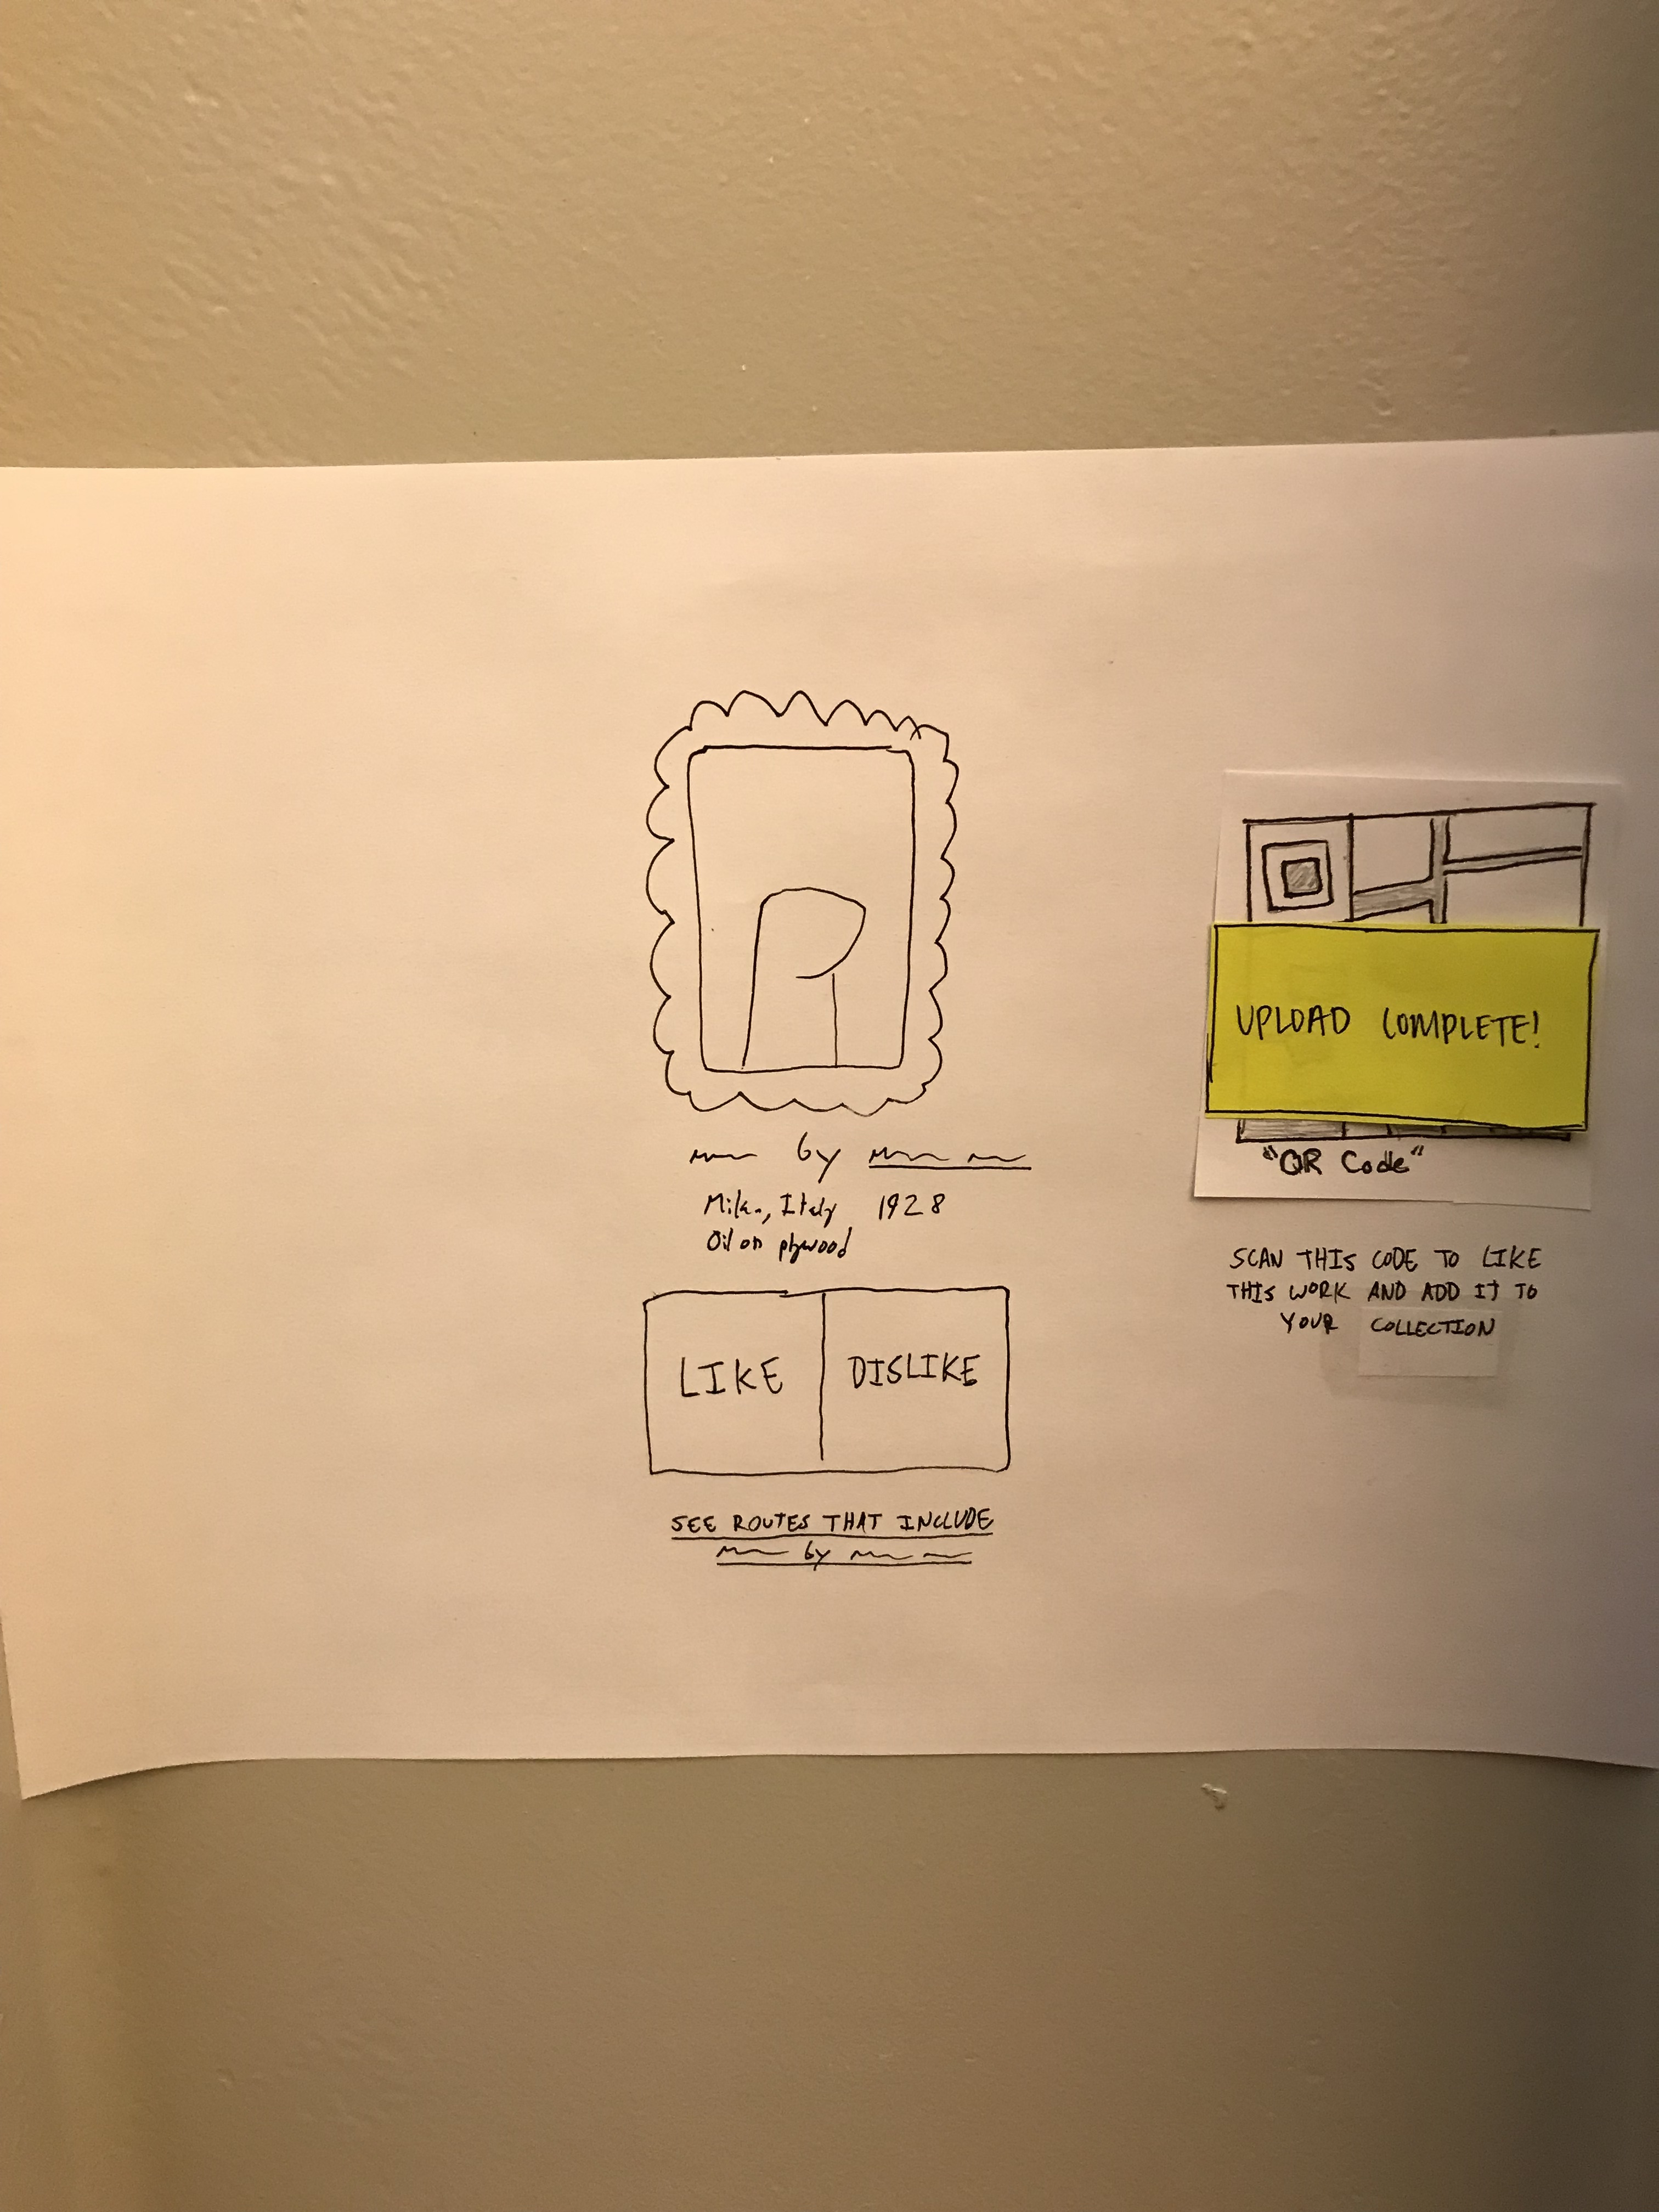 by
Italy 1928
Oil on plywood
LIKE
DISLIKE
SEE ROUTES THAT INCLUDE
by
UPLOAD COMPLETE!
"QR Code"
SCAN THIS CODE TO LIKE
THIS WORK AND ADD IT TO
YOUR COLLECTION